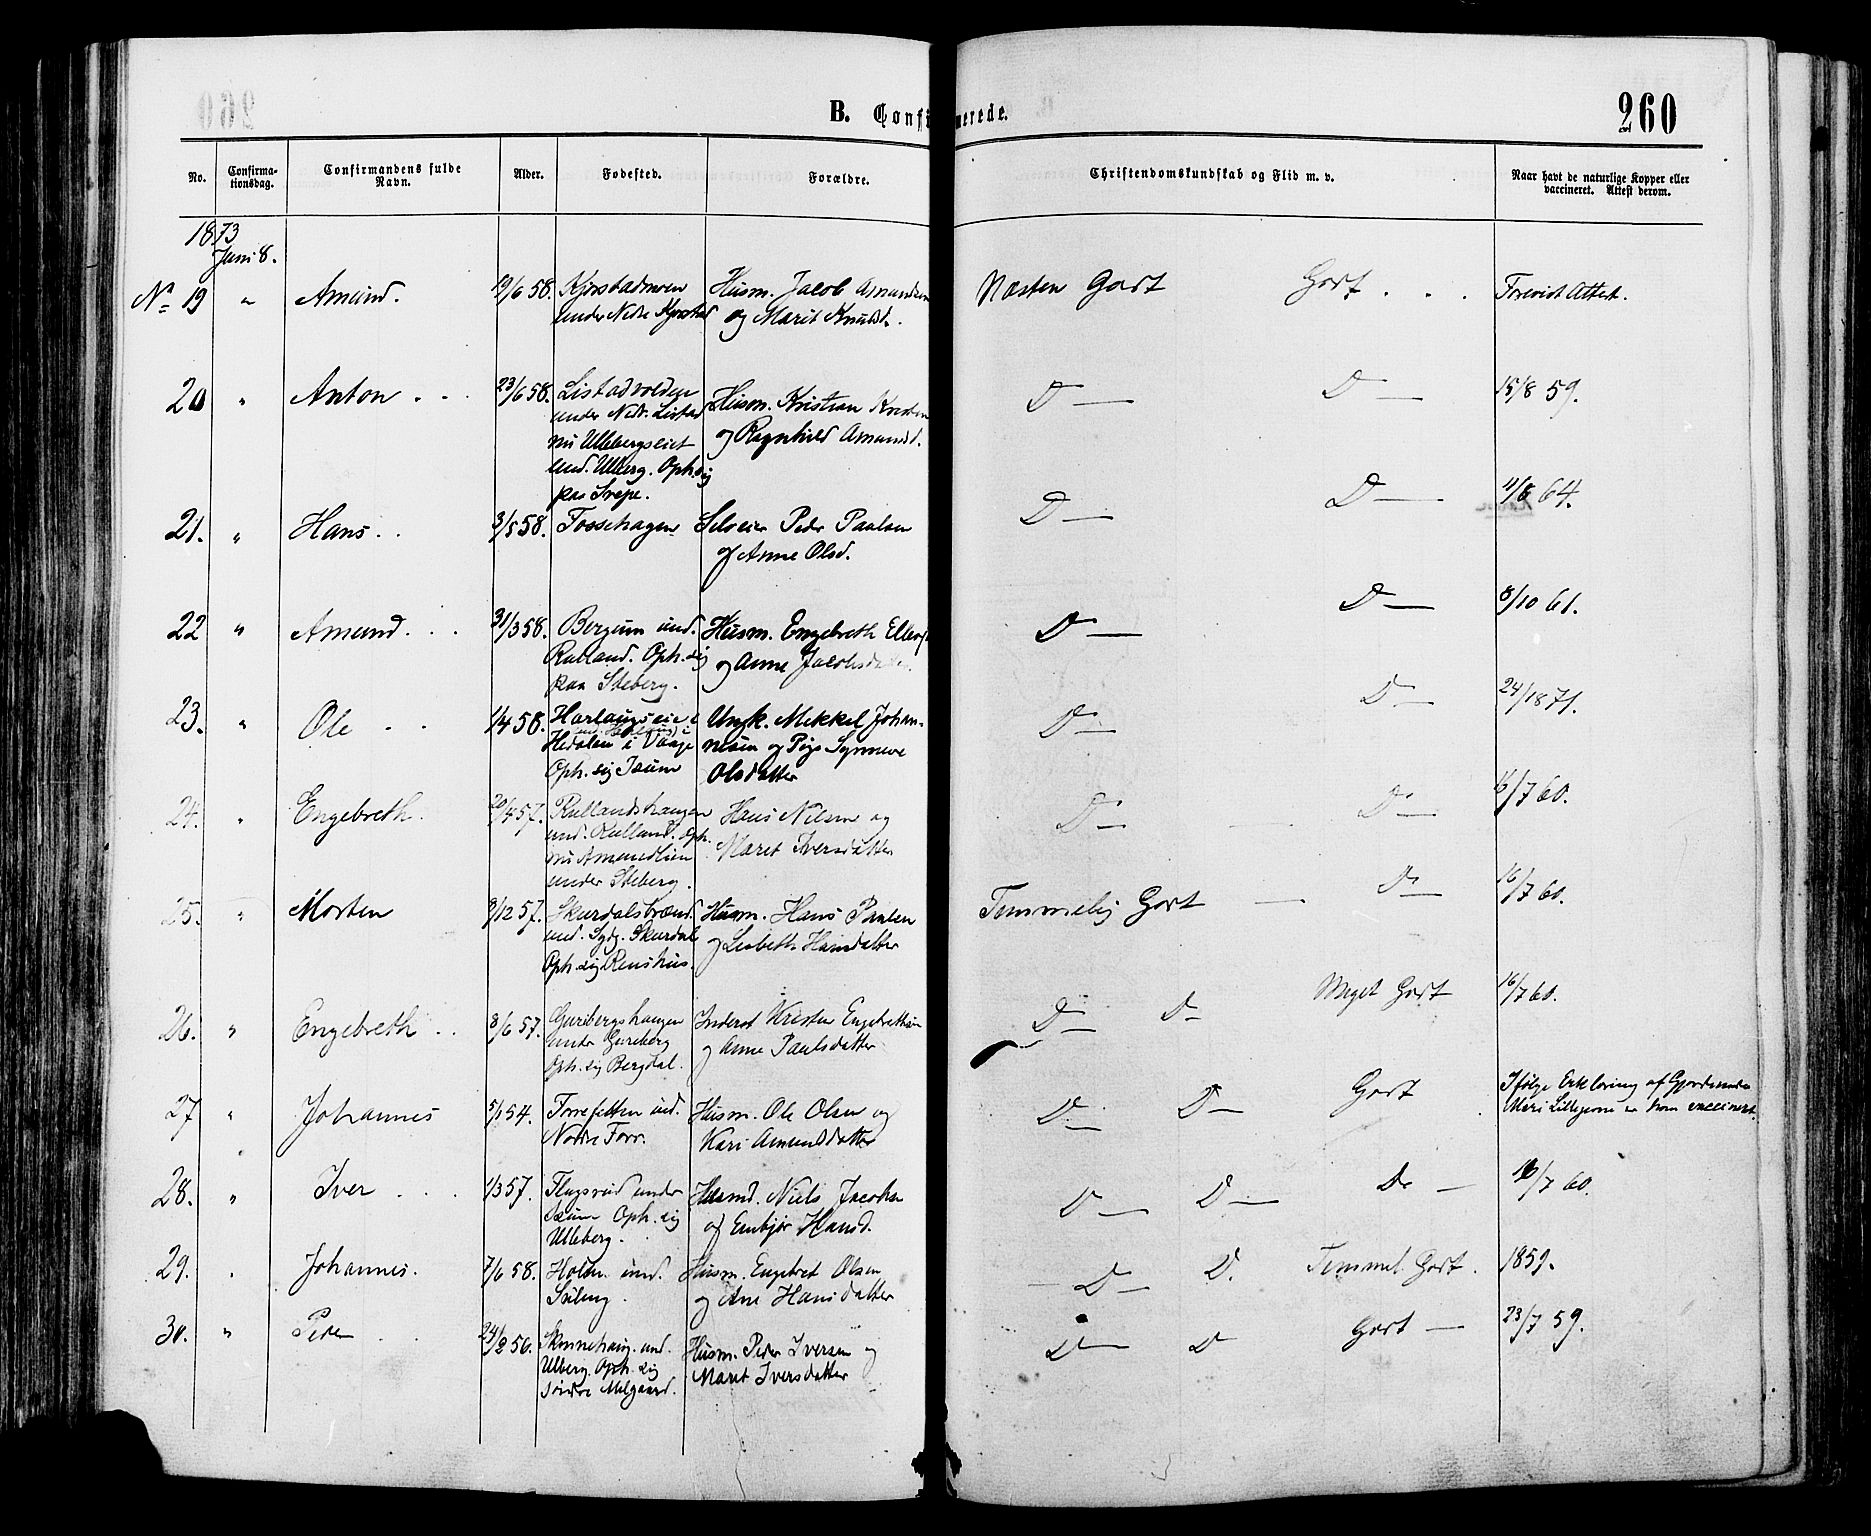 B. Confirmerede.
260
No.
Confirma-
tionsdag.
Confirmandens fulde
Navn.
Alder.
Fødested.
Forældre.
Christendomskundskab og Flid m. v.
Naar havt de naturlige Kopper eller
vaccineret. Attest derom.
1873
Juni 8.
No 19 " Amund. 19/6 58. Kjorstadmoen
under Nedre Kjorstad
Husm. Jacob Amundsen
og Marit Knudsd.
Næsten Godt Godt . . . Forevist Attest.
20 " Anton . . . 23/6 58. Listadvolden
under Nedr. Listad
nu Ullebergseiet
und. Ulberg. Oph. sig
paa Svepe.
Husm. Kristian
og Ragnhild Amundsd.
D — D — 15/8 59.
21. " Hans . . 3/5 58. Fossehagen
Selveier Peder Paulsen
og Anne Olsd.
D — D — 11/8 64.
22 " Amund . . . 31/3 58. Bergum und.
Rulland. Oph. sig
paa Steberg.
Husm. Engebreth
og Anne Jacobsdatter.
D — D — 8/10 61.
23. " Ole . . 1/4 58. Harlaugseie
Hedalen i Vaage
Oph. sig Isum
Ungk. Mikkel Johan-
nesen og Pige Synneve
Olsdatter
D — D — 24/18 71.
24. " Engebreth. 20/4 57. Rullandshaugen
und. Rulland. Oph.
nu Amundlien
under Steberg.
Hans Nilsen og
Maret Iversdatter
D — D — 16/7 60.
25. " Morten 9/12 57. Skurdalsbrænd.
und. Sydg. Skurdal
Oph. sig Renshus.
Husm. Hans Paulsen
og Lisbeth Hansdatter
Temmelig Godt — D — 16/7 60.
26. " Engebreth . . 8/6 57. Guribergshaugen
under Guriberg
Oph. sig Bergdal.
Inderst Kristen Engebrethsen
og Anne Paulsdatter
D — D — Meget Godt 16/7 60.
27 " Johannes 5/1 54. Forrefetten und.
Nordre Forr.
Husm. Ole Olsen og
Kari Amundsdatter
D — D — Godt Ifølge Erklæring af Gjordemoder
Mari Lillegaard er han vaccinert.
28. " Iver . . . 1/3 57. Flugsrud under
Isum Oph. sig
Ulleberg.
Husmd. Niels Jacobsen
og Embjør Hansd.
D — D — Do — 16/7 60.
29. Johannes. 7/6 58. Holen und.
Husm. Engebret Olsen
og Ane Hansdatter
D — D. Temmel. Godt. 1859.
30. " Peder . . 24/2 56. Skinnehaug. und.
Ulberg. Oph. sig
Søndre Melgaard.
Husm. Peder Iversen og
Maret Iversdatter
D — D Godt — 23/7 59.